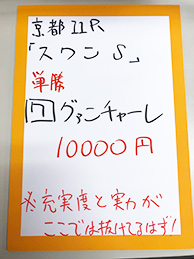 京都11R
「スワンS」
単勝
7 グァンチャーレ
10000円
※充実度と実力が
ここでは抜けてるはず!